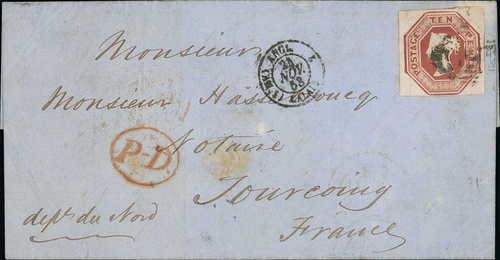 Monsieur
Monsieur Hassebroucq
Notaire
Tourcoing
dept du Nord
France
P-D.
ANGL.
NOV.
53
POSTAGE TEN PENCE